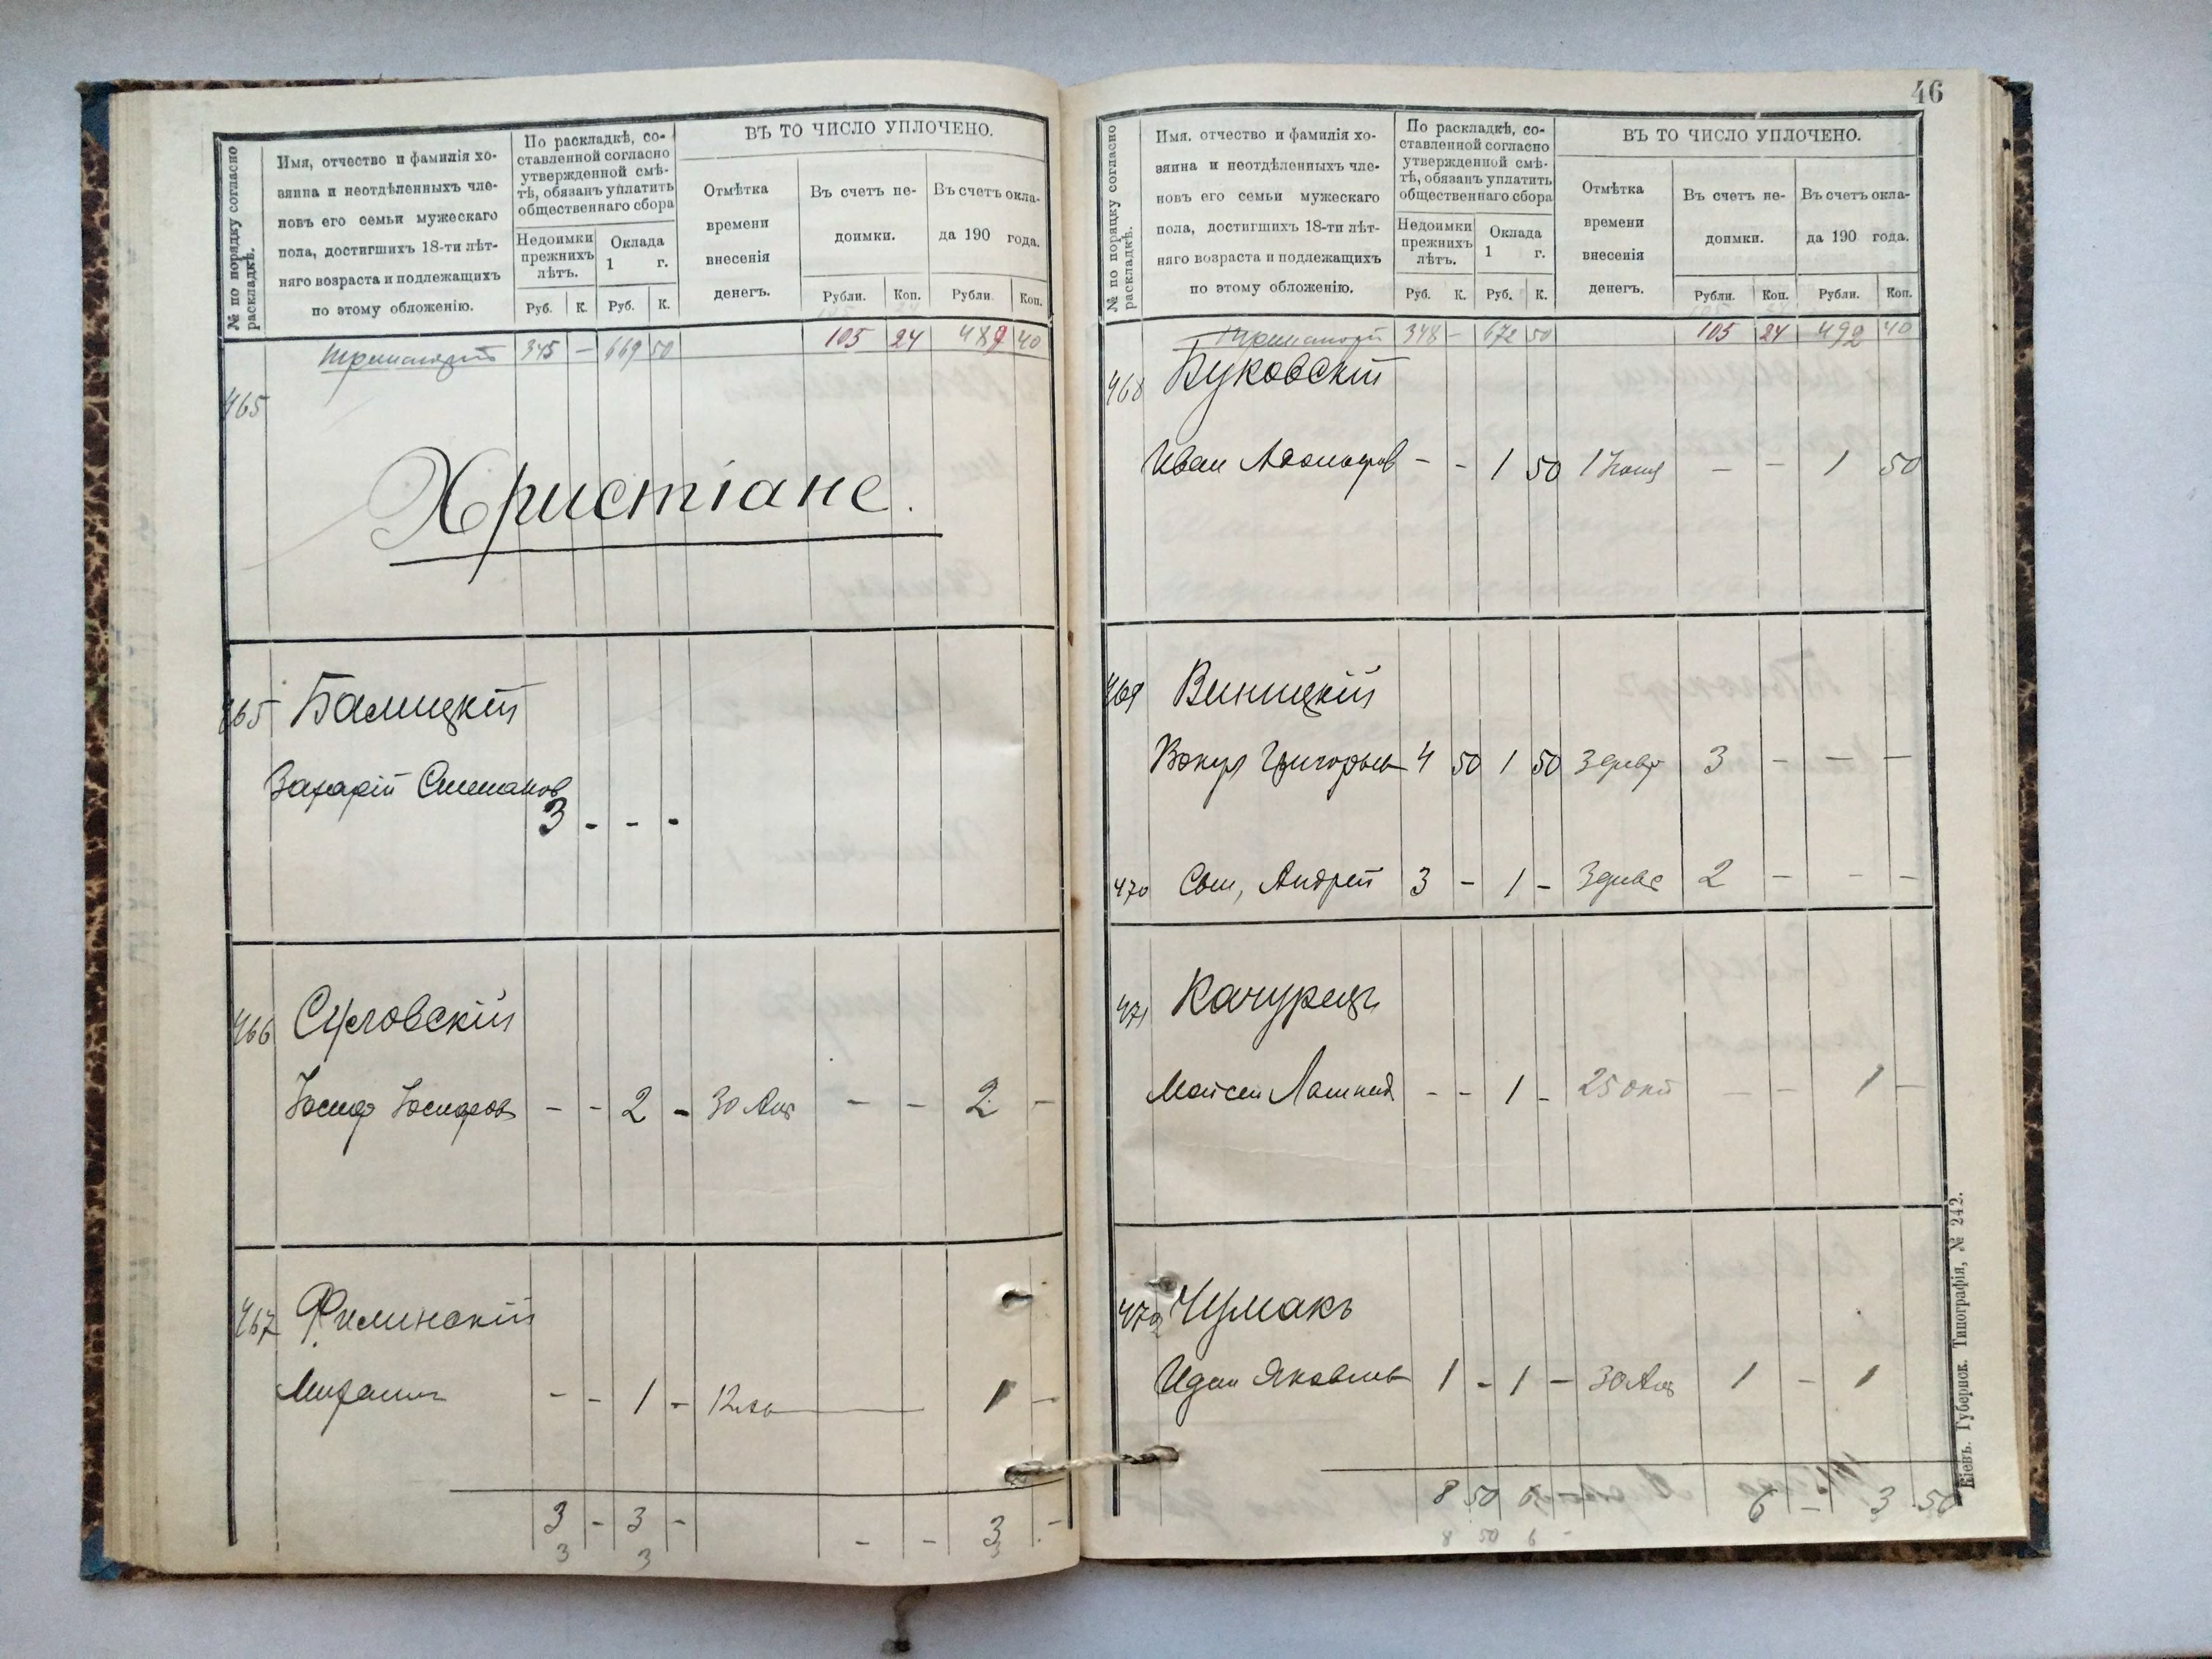 № по порядку согласно
раскладкѣ.
Имя, отчество и фамилія хо-
зяина и неотдѣленныхъ чле-
новъ его семьи мужескаго
пола, достигшихъ 18-ти лѣт-
няго возраста и подлежащихъ
по этому обложенію.
По раскладкѣ, со-
ставленной согласно
утвержденной смѣ-
тѣ, обязанъ уплатить
общественнаго сбора
Недоимки
прежнихъ
лѣтъ.
Оклада
1 г.
Руб. К. Руб. К.
ВЪ ТО ЧИСЛО УПЛОЧЕНО.
Отмѣтка
времени
внесенія
денегъ.
Въ счетъ не-
доимки.
Въ счетъ окла-
да 190 года.
Рубли. Коп. Рубли. Коп.
345 – 669 50 105 24 489 40
465
Христіане.
465 Балицкій
Захарій
3 - - -
466 Сусловскій
- - 2 - 30 Авг – – 2 –
467 Филинскій
- - 1 - 1 –
3 - 3 - - - 3 -
3 3 3
46
№ по порядку согласно
раскладкѣ.
Имя, отчество и фамилія хо-
зяина и неотдѣленныхъ чле-
новъ его семьи мужескаго
пола, достигшихъ 18-ти лѣт-
няго возраста и подлежащихъ
по этому обложенію.
По раскладкѣ, со-
ставленной согласно
утвержденной смѣ-
тѣ, обязанъ уплатить
общественнаго сбора
Недоимки
прежнихъ
лѣтъ.
Оклада
1 г.
Руб. К. Руб. К.
ВЪ ТО ЧИСЛО УПЛОЧЕНО.
Отмѣтка
времени
внесенія
денегъ.
Въ счетъ не-
доимки.
Въ счетъ окла-
да 190 года.
Рубли. Коп. Рубли. Коп.
348 – 672 50 105 24 492 40
468 Буковскій
Иван - - 1 50 – – 1 50
469 Виницкій
4 50 1 50 3 – – –
470 Сын, Андрей 3 - 1 - 2 – - –
471 Качурецъ
Мойсей - - 1 - 25 окт – – 1 –
472 Чумакъ
Яковлев 1 - 1 – 30 Авг 1 – 1
8 50 6 - 6 – 3 50
8 50 6 -
Кіевъ. Губернск. Типографія, № 242.